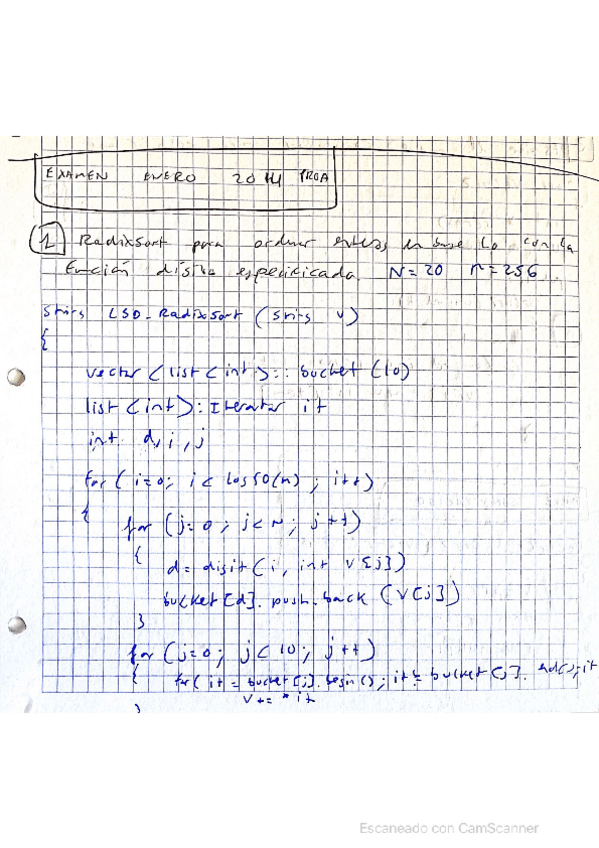 EXAMEN ENERO 2014 PROA
1 RadixSort para ordenar enteros en base 10 con la
función dígito especificada. N=20 r=256
LSD-RadixSort ( v)
{
vector <list<int>:: bucket (10)
list <int>: Iterator it
int d, i, j
for ( i=0; i < (n) ; i++)
{
for (j=0 ; j<N ; j++)
{
d = digit (i, int v[j])
bucket [d]. push-back (v[j])
}
for (j=0; j<10; j++)
{ for( it = bucket[j]. begin(); it != bucket[j]. end(); it
v += * it
}
Escaneado con CamScanner